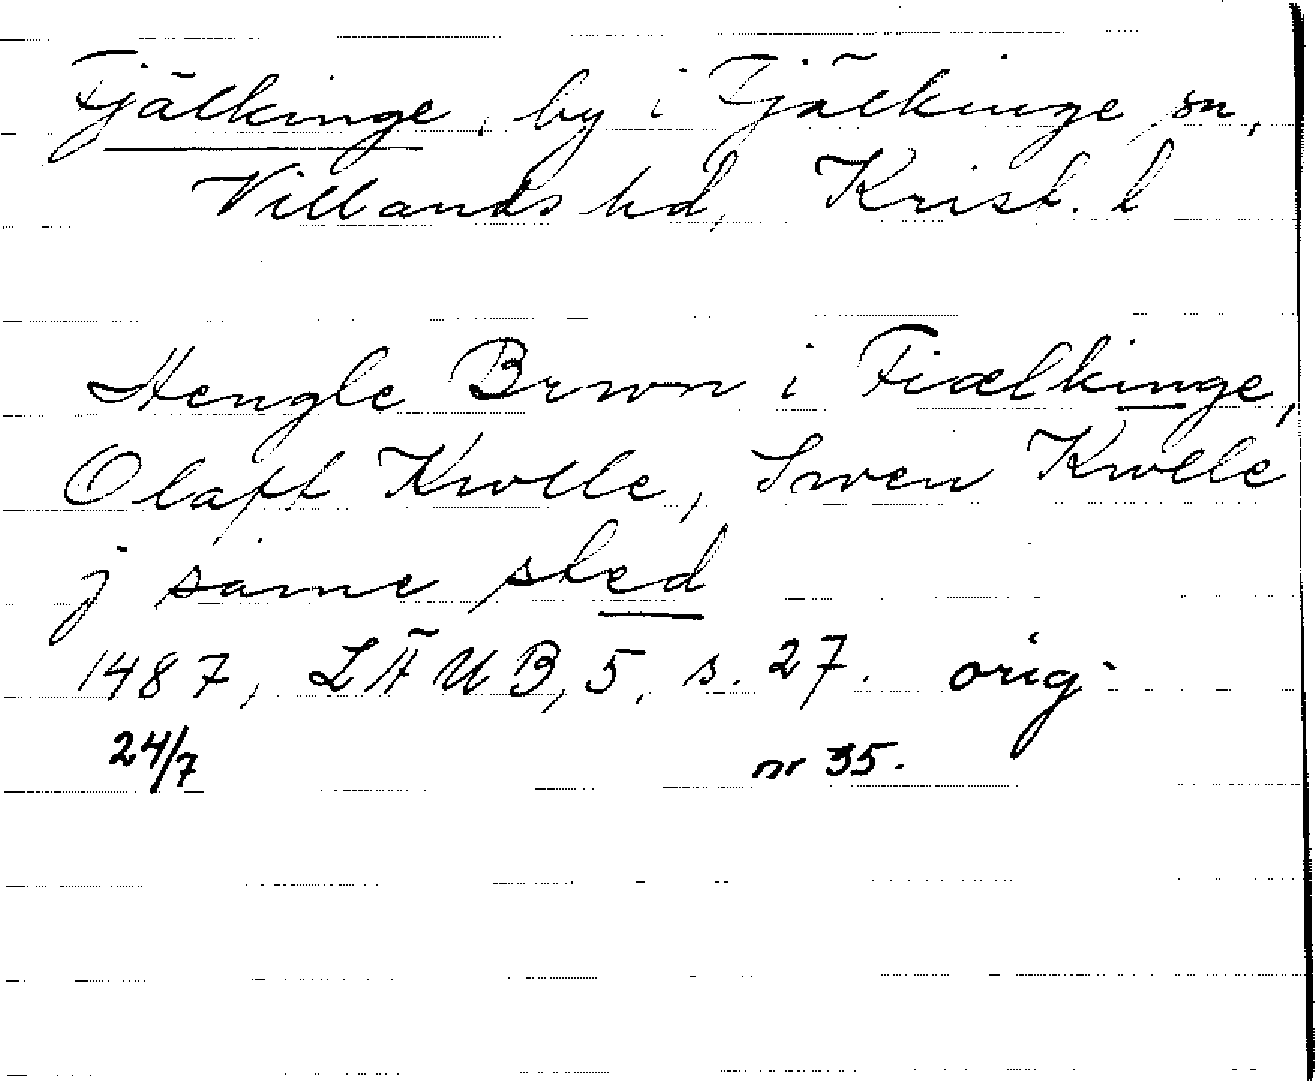 Fjälkinge, by i Fjälkinge sn,
Villands hd, Krist. l
Hengle Brwn i Fiælkinge,
Olaff Kwlle, Swen Kwlle
j same sted
1487, LÄUB, 5, s. 27. orig.
24/7 nr 35.